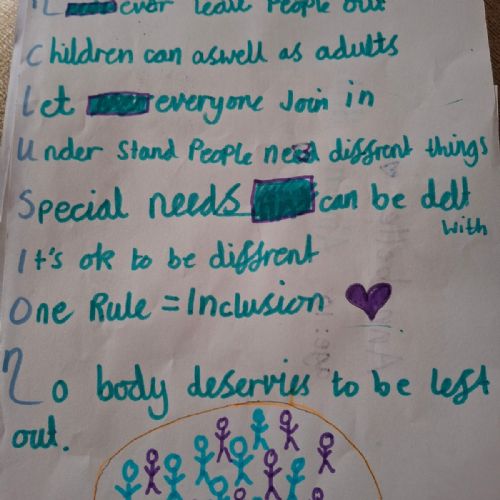 Never leave People out
Children can aswell as adults
Let everyone Join in
Under Stand People need diffrent things
Special needs can be delt
with
It's ok to be diffrent
One Rule = Inclusion
No body deservies to be left
out.